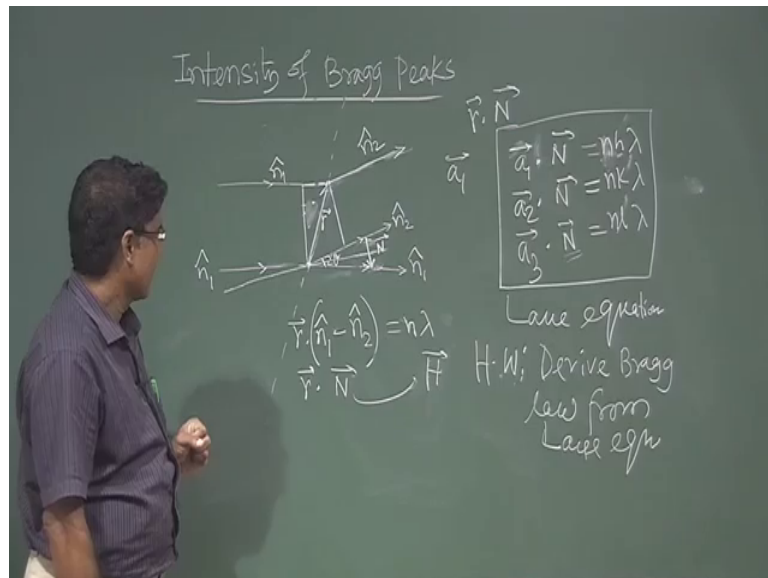 Intensity of Bragg Peaks
n̂₁
n̂₂
r⃗
n̂₂
N⃗
2θ
n̂₁
n̂₁
r⃗·(n̂₁ - n̂₂) = nλ
r⃗·N⃗
H⃗
r⃗·N⃗
a⃗₁
a⃗₁·N⃗ = nhλ
a⃗₂·N⃗ = nkλ
a⃗₃·N⃗ = nlλ
Laue equation
H.W; Derive Bragg
law from
Laue eqn